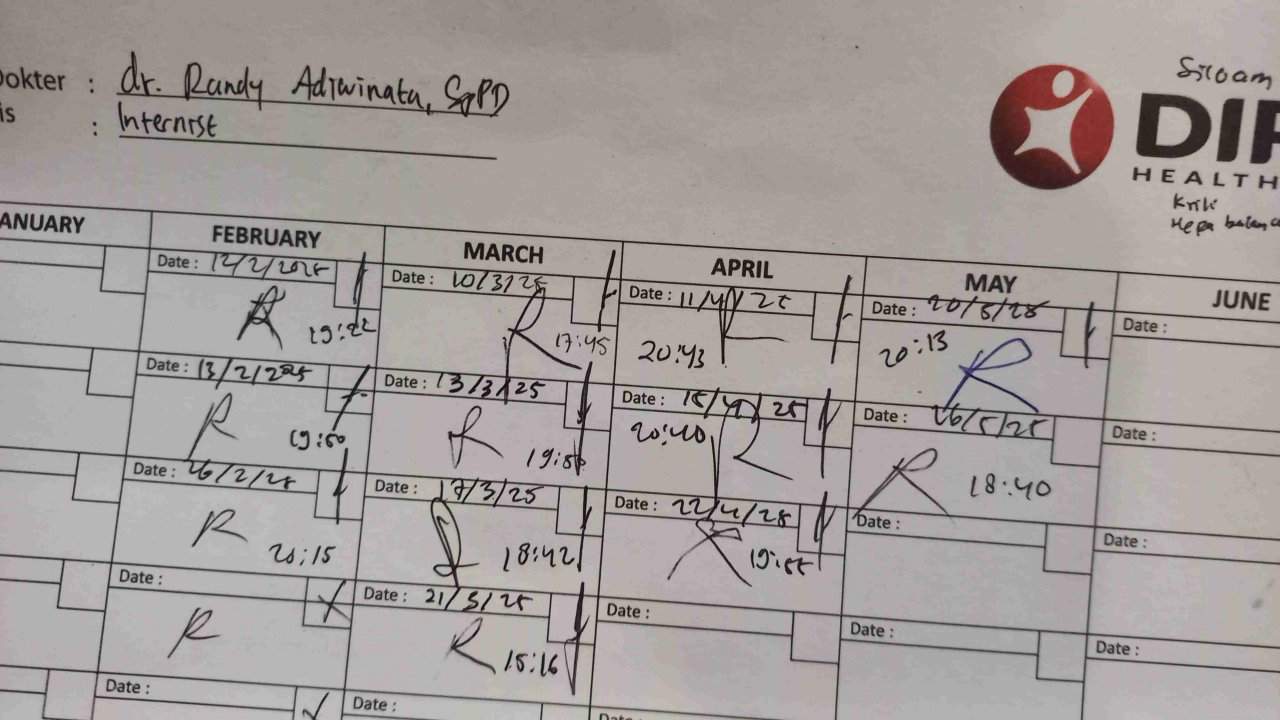 Dokter : dr. Randy Adiwinata, SpPD
is : Internist
Siloam
DIP
HEALTH
Kriti
ANUARY FEBRUARY MARCH APRIL MAY JUNE
Date : 12/2/2025 Date : 10/3/25 Date : 11/4/25 Date : 20/5/25 Date :
R 19:22 R 17:45 20:43 R 20:13 R
Date : 13/2/2025 Date : 13/3/25 Date : 15/4/25 Date : 26/5/25 Date :
R 19:50 R 19:50 20:40 R R 18:40
Date : 26/2/25 Date : 17/3/25 Date : 22/4/25 Date : Date :
R 20:15 R 18:42 R 19:55
Date : Date : 21/3/25 Date : Date : Date :
R R 15:16
Date : Date : Date :